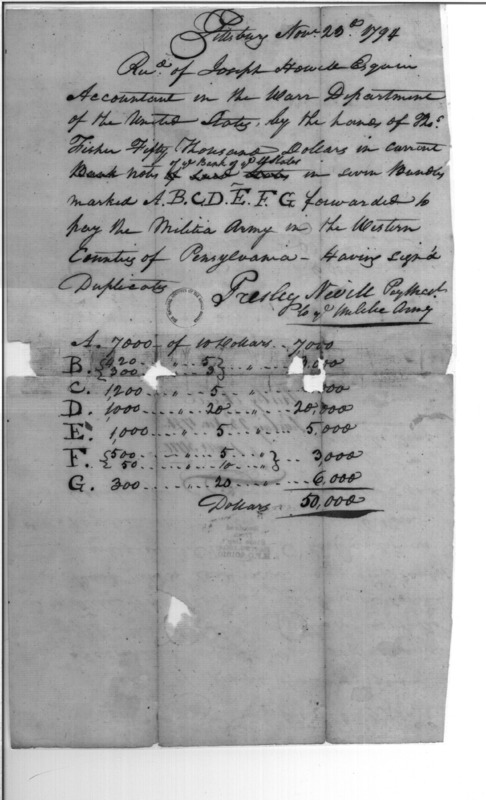 Pittsburg Nov. 20th 1794
Recd. of Joseph Howell Esquire
Accountant in the Warr Department
of the United States, by the hands of Thos.
Fisher Fifty Thousand Dollars in current
of ye Bank of ye U States
Bank notes of said States in seven Bundles
marked A. B, C, D. E. F. G forwarded to
pay the Militia Army in the Western
Counties of Pensylvania - Having sign'd
Duplicate
Presley Nevill Pay Mast.
to ye Militia Army
A. 7000 - of 10 Dollars .. 7000
B. { 120 .... " 5
300 .... " } .. "
C. 1200 ...... " 5 .... "
D. 1000 ...... " 20 .... " ... 20,000
E. 1,000 .... " 5 .... " ... 5,000
F. { 500 .... " 5
50 .... " 10 } " ... 3,000
G. 300 ...... " 20 .... " ... 6,000
Dollars 50,000